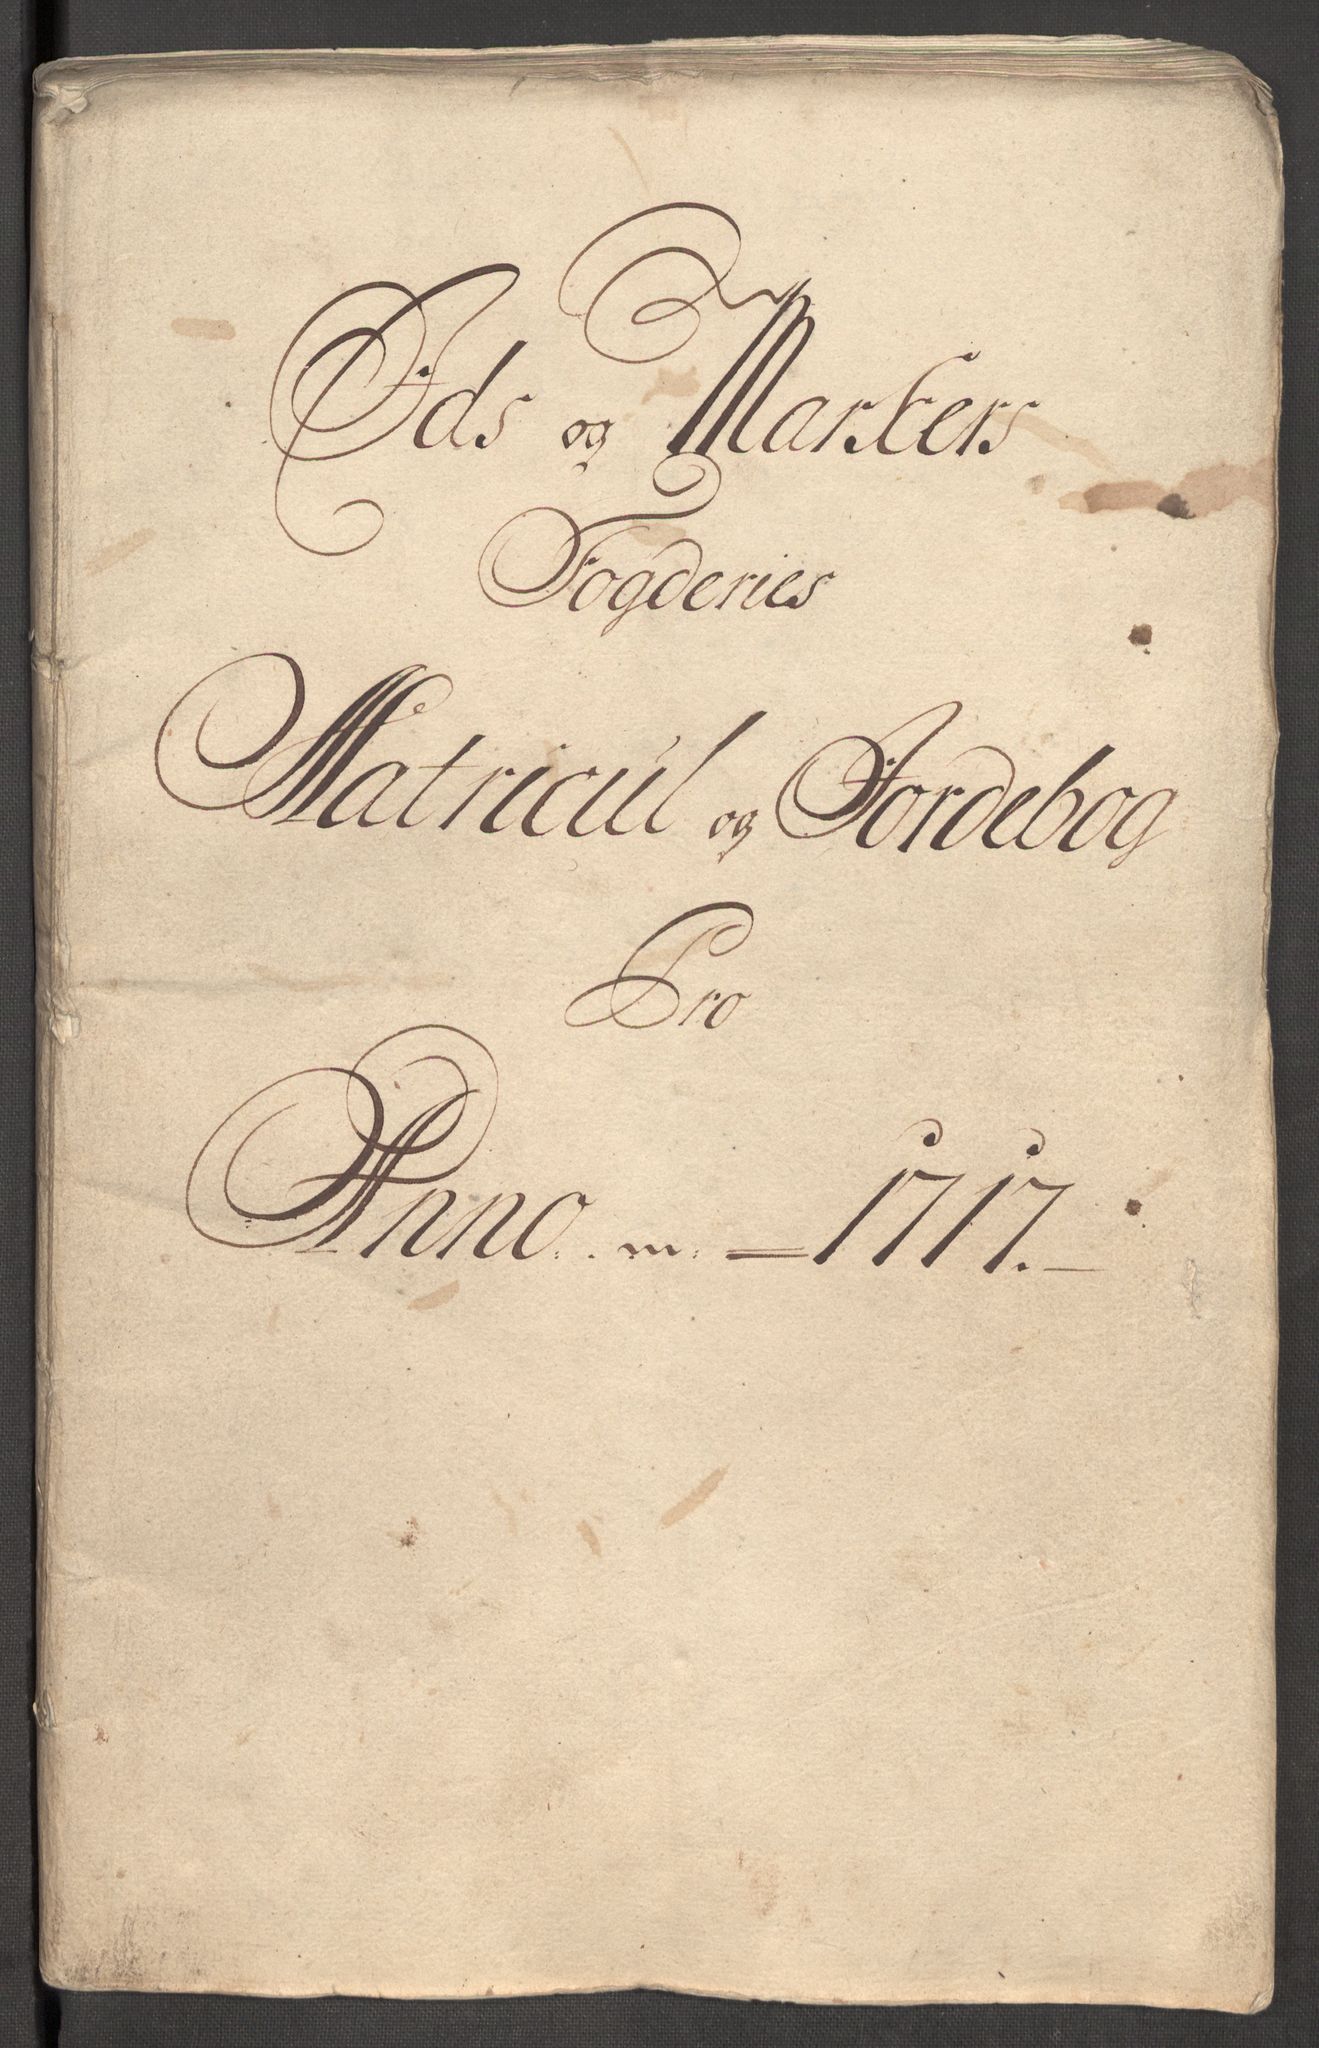 Ids og Markers
Fogderies
Matricul og Jordebog
Pro
Anno. . m. = 1717. -